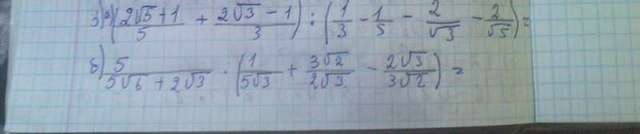 3) a) ((2√5+1)/5 + (2√3-1)/3) : (1/3 - 1/5 - 2/√3 - 2/√5) =
б) 5/(5√6+2√3) · (1/(5√3) + (3√2)/(2√3) - (2√3)/(3√2)) =